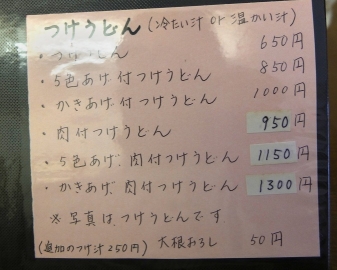 つけうどん (冷たい汁 or 温かい汁)
・つけうどん 650円
・5色あげ付つけうどん 850円
・かきあげ付つけうどん 1000円
・肉付つけうどん 950円
・5色あげ 肉付つけうどん 1150円
・かきあげ 肉付つけうどん 1300円
※写真はつけうどんです
(追加のつけ汁250円) 大根おろし 50円